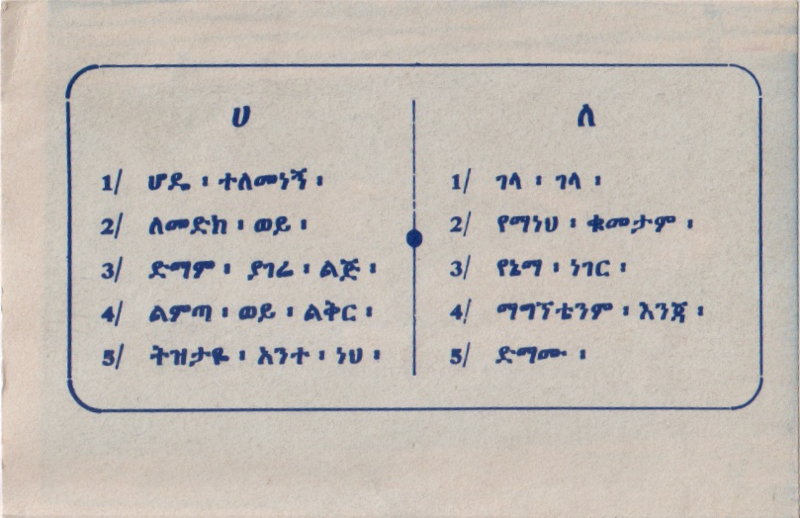 ሀ
1/ ሆዴ ፡ ተለመነኝ ፡
2/ ለመድክ ፡ ወይ ፡
3/ ድማም ፡ ያገሬ ፡ ልጅ ፡
4/ ልምጣ ፡ ወይ ፡ ልቅር ፡
5/ ትዝታዬ ፡ አንተ ፡ ነህ ፡
ለ
1/ ገላ ፡ ገላ ፡
2/ የማነህ ፡ ቁመታም ፡
3/ የኔማ ፡ ነገር ፡
4/ ማግኘቴንም ፡ እንጃ ፡
5/ ድማሙ ፡